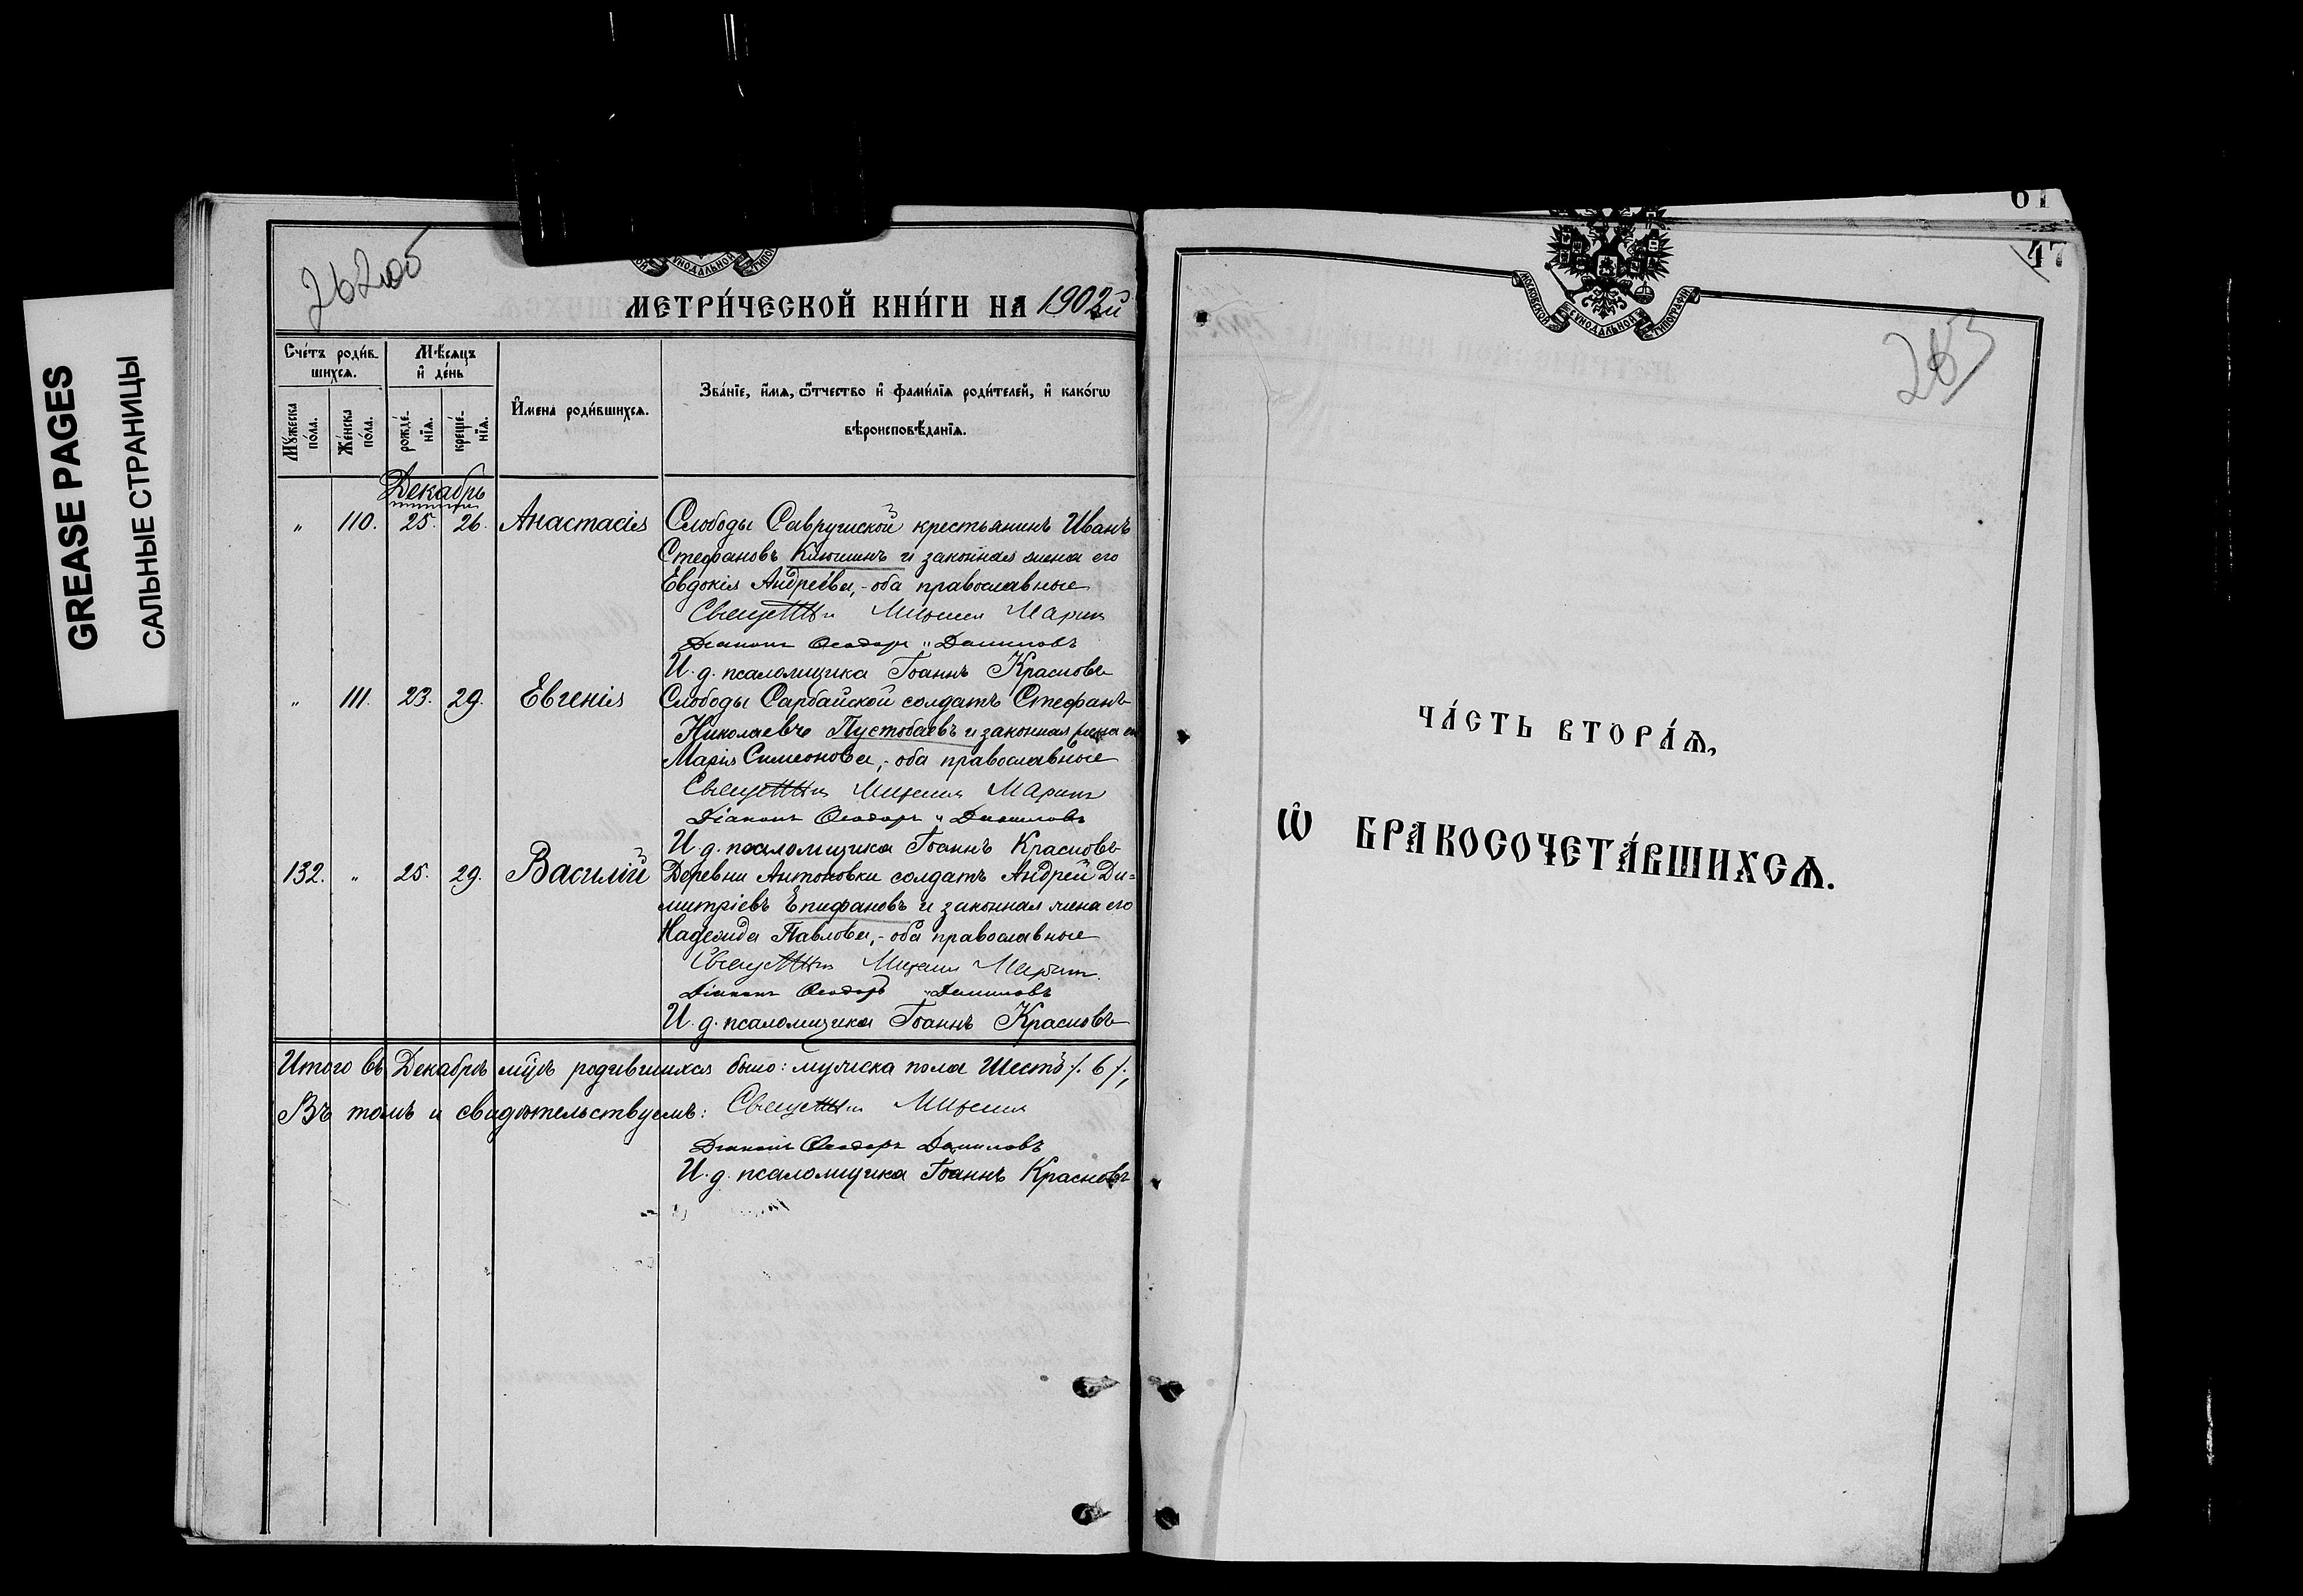 GREASE PAGES
САЛЬНЫЕ СТРАНИЦЫ
262об
МЕТРИ́ЧЕСКОЙ КНИ́ГИ НА 1902й
Сче́тъ роди́в-
шихсѧ.
Мѣ́сѧцъ
и҆ де́нь
Мꙋ́жеска
по́ла.
Же́нска
по́ла.
рожде́-
нїѧ.
креще́-
нїѧ.
И҆мена роди́вшихсѧ.
Зва́нїе, и҆́мѧ, ѻ҆́тчество и҆ фами́лїѧ роди́телей, и҆ како́гѡ
вѣроисповѣ́данїѧ.
Декабрь
„ 110. 25. 26. Анастасія
Слободы Саврушской крестьянинъ Иванъ
Стефановъ Клюшинъ и законная жена его
Евдокія Андреева,- оба православные
Михаил Марин
Діаконъ Ѳеодоръ Даниловъ
И. д. псаломщика Іоаннъ Красновъ
„ 111. 23. 29. Евгенія
Слободы Сарбайской солдатъ Стефанъ
Николаевъ Пустобаевъ и законная жена его
Марія Симеонова,- оба православные
Михаил Марин
Діаконъ Ѳеодоръ Даниловъ
И. д. псаломщика Іоаннъ Красновъ
132. „ 25. 29. Василій
Деревни Антоновки солдатъ Андрей Ди=
митріевъ Епифановъ и законная жена его
Надежда Павлова,- оба православные
Михаил Марин
Діаконъ Ѳеодоръ Даниловъ
И. д. псаломщика Іоаннъ Красновъ
Итого въ Декабрѣ мцѣ родившихся было: мужска пола Шесть /. 6 /.,
Въ томъ и свидѣтельствуемъ: Михаил
Діаконъ Ѳеодоръ Даниловъ
И. д. псаломщика Іоаннъ Красновъ
61
47
МОСКОВСКОЙ СѴНОДАЛЬНОЙ ТИПОГРАФИИ
263
ЧА́СТЬ ВТОРА́Ѧ,
Ѡ҆ БРАКОСОЧЕТА́ВШИХСѦ.